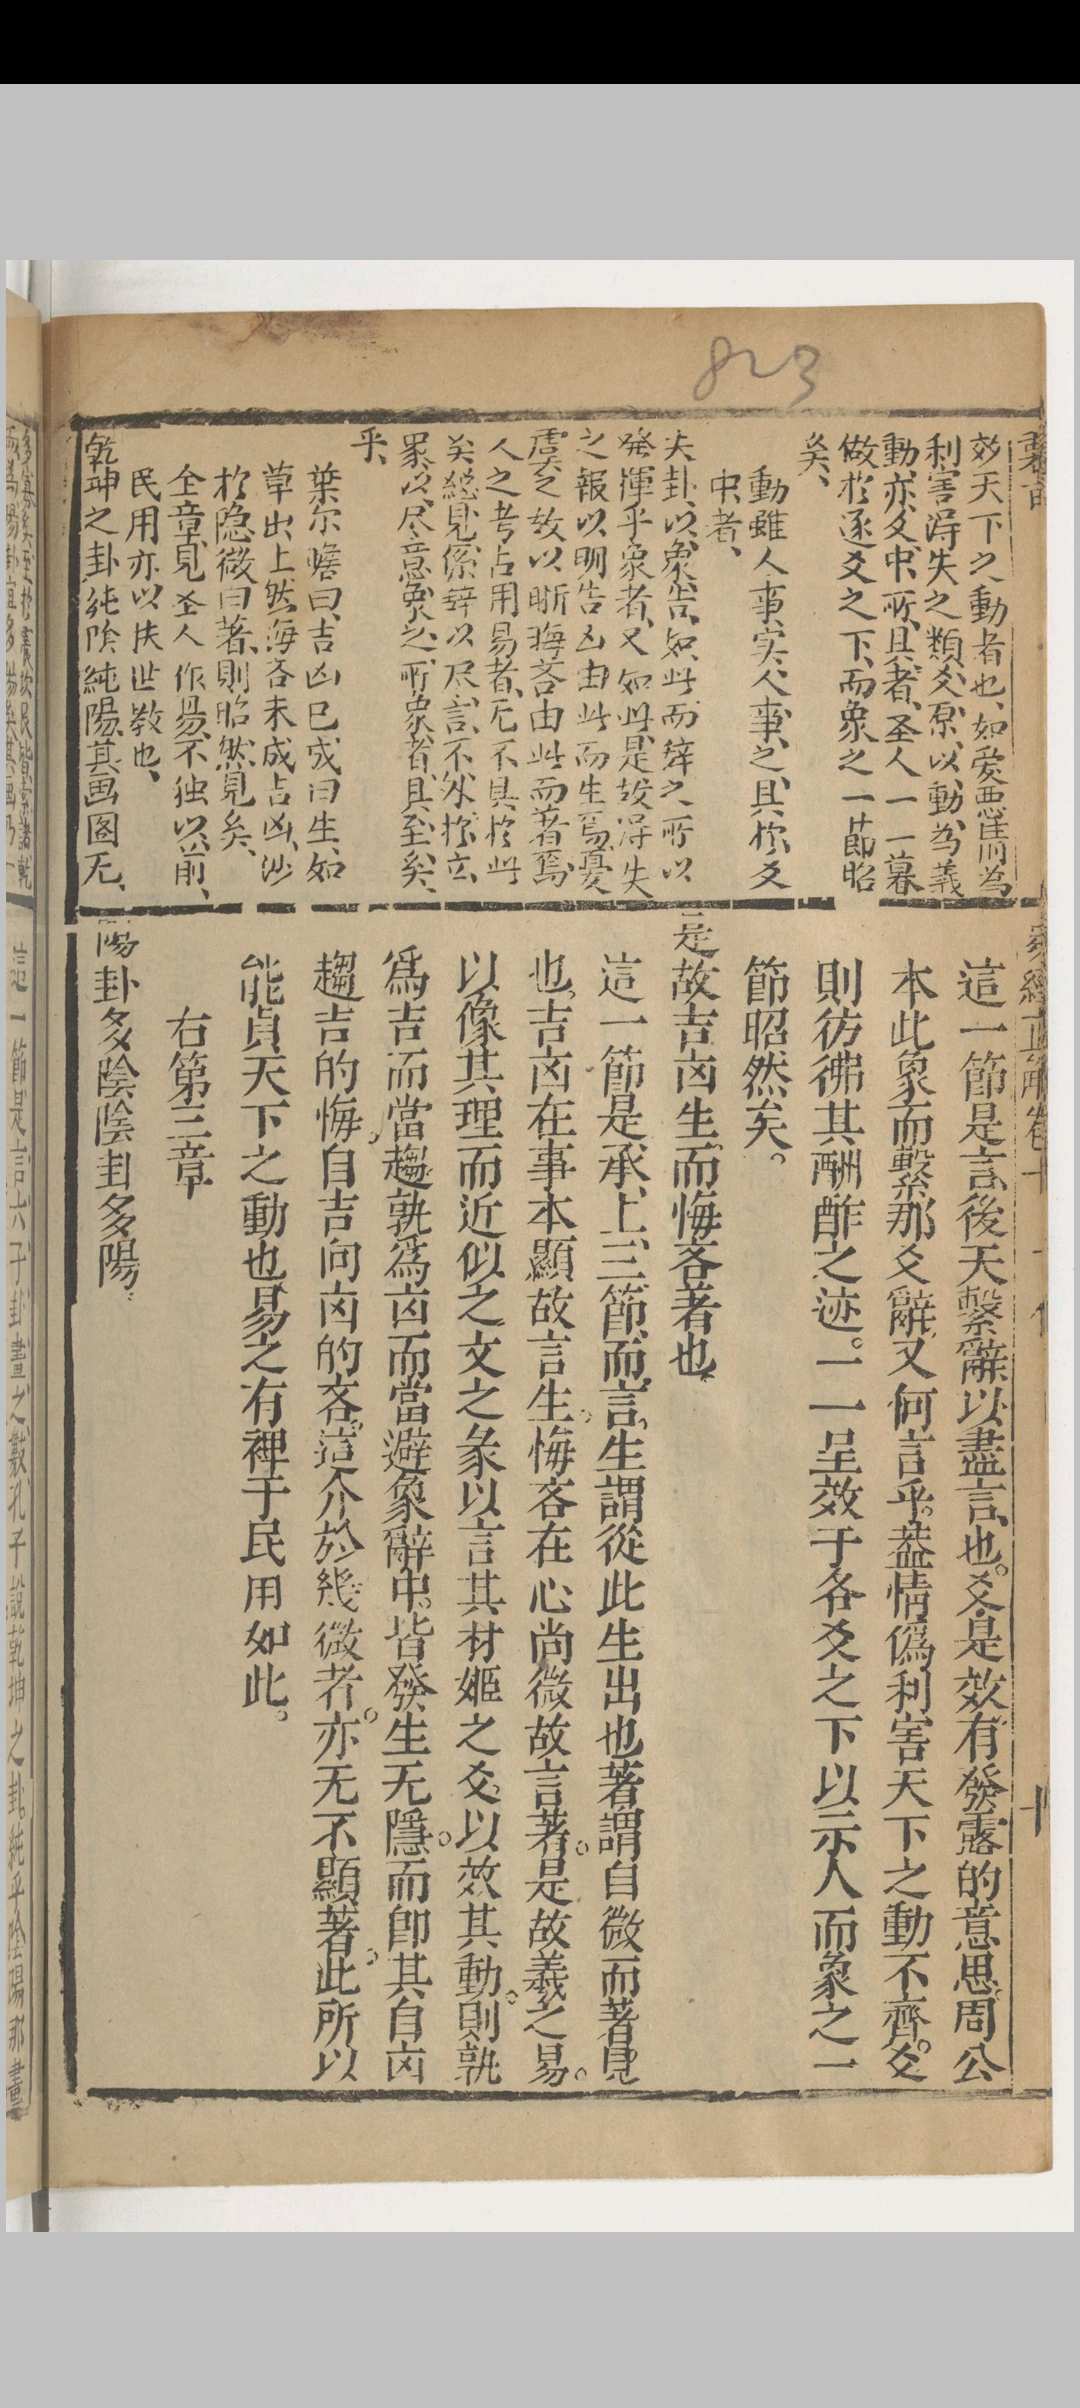 823
效天下之動者也、如爱惡屬爲
利害淂失之類、爻原以動爲義
動亦爻中所具者、圣人一一暮
做於逐爻之下、而象之一節昭
矣、
動雖人事、实人事之具於爻
中者、
夫卦以象告、如此而辞之所以
発揮乎象者、又如此、是故淂失
之報以明、吉凶由此而生焉、憂
虞之故以晰、悔吝由此而著焉、
人之考占用易者、无不具於此
矣、總見係辞以尽言、不外於立
象以尽意、象之所象者、其至矣
乎、
葉尔瞻曰、吉凶已成曰生、如
草出上然、悔吝未成吉凶、沙
於隐微曰著、則昭然見矣、
全章見圣人作易、不独以前
民用、亦以扶世教也、
乾坤之卦、純陰純陽、其画图无、
這一節是言後天繫辭以盡言也。爻是效、有發露的意思。周公
本此象而繫那爻辭、又何言乎。葢情僞利害、天下之動不齊。爻
則彷彿其酬酢之迹。一一呈效于各爻之下以示人、而象之一
節昭然矣。
是故吉凶生而悔吝著也
這一節是承上三節而言。生謂從此生出也、著謂自微而著見
也。吉凶在事本顯故言生。悔吝在心尚微故言著。是故羲之易。
以像其理而近似之、文之彖以言其材、姬之爻以效其動。則孰
爲吉而當趨、孰爲凶而當避、象辭中皆發生无隱。而卽其自凶
趨吉的悔、自吉向凶的吝。這介於幾微者。亦无不顯著。此所以
能貞天下之動也、易之有裨于民用如此。
右第三章
陽卦多陰陰卦多陽
這一節是言六子卦畫之數、孔子說乾坤之卦。純乎陰陽那畫